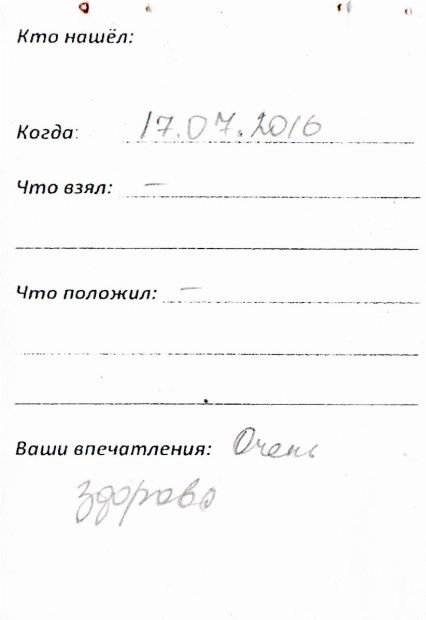 Кто нашёл:
Когда: 17.07.2016
Что взял: —
Что положил: —
Ваши впечатления: Очень
здорово